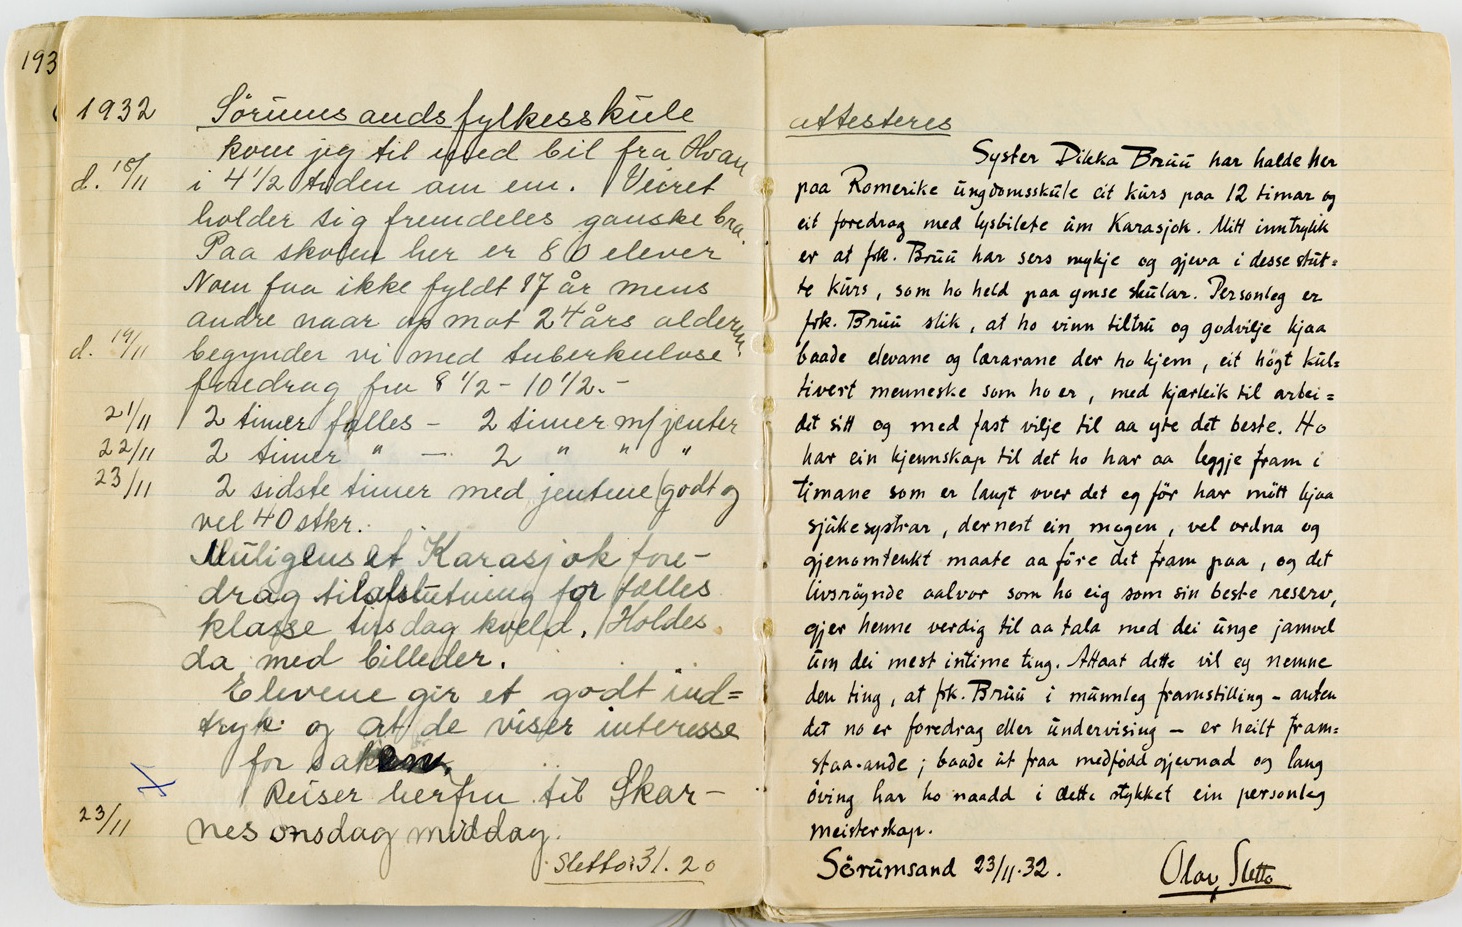 193
1932 Sörumsands fylkesskule
kom jeg til med bil fra Hvam
d. 18/11 i 4 1/2 tiden am em. Veiret
holder sig fremdeles ganske bra.
Paa skolen her er 80 elever
Noen faa ikke fyldt 17 år mens
andre naar op mot 24 års alderen.
d. 19/11 begynder vi med tuberkulose
foredrag fra 8 1/2 - 10 1/2. -
21/11 2 timer fælles - 2 timer m/jenter
22/11 2 timer " - 2 " " "
23/11 2 sidste timer med jentene (godt og
vel 40 stkr.
Muligens et Karasjok fore-
drag til afslutning for fælles
klasse tirsdag kveld. Holdes
da med billeder.
Elevene gir et godt ind=
tryk: og at de viser interesse
for saken.
Reiser herfra til Skar-
23/11 nes onsdag middag.
Sletto: 31. 20
attesteres
Syster Dikka Bruu har halde her
paa Romerike ungdomsskule eit kurs paa 12 timar og
eit foredrag med lysbilete um Karasjok. Mitt inntrykk
er at frk. Bruu har sers mykje og gjeva i desse stut=
te kurs, som ho held paa ymse skular. Personleg er
frk. Bruu slik, at ho vinn tiltru og godvilje hjaa
baade elevane og lærarane der ho kjem, eit högt kul=
tivert menneske som ho er, med kjærleik til arbei=
det sitt og med fast vilje til aa yte det beste. Ho
har ein kjennskap til det ho har aa leggje fram i
timane som er langt over det eg för har mött hjaa
sjukesystrar, dernest ein mogen, vel ordna og
gjenomtenkt maate aa före det fram paa, og det
livsröynde aalvor som ho eig som sin beste reserv,
gjer henne verdig til aa tala med dei unge jamvel
um dei mest intime ting. Attaat dette vil eg nemne
den ting, at frk. Bruu i munnleg framstilling - anten
det no er foredrag eller undervising - er heilt fram=
staa-ande; baade ut fraa medfödd gjevnad og lang
öving har ho naadd i dette stykket ein personleg
meisterskap.
Sörumsand 23/11.32. Olav Sletto